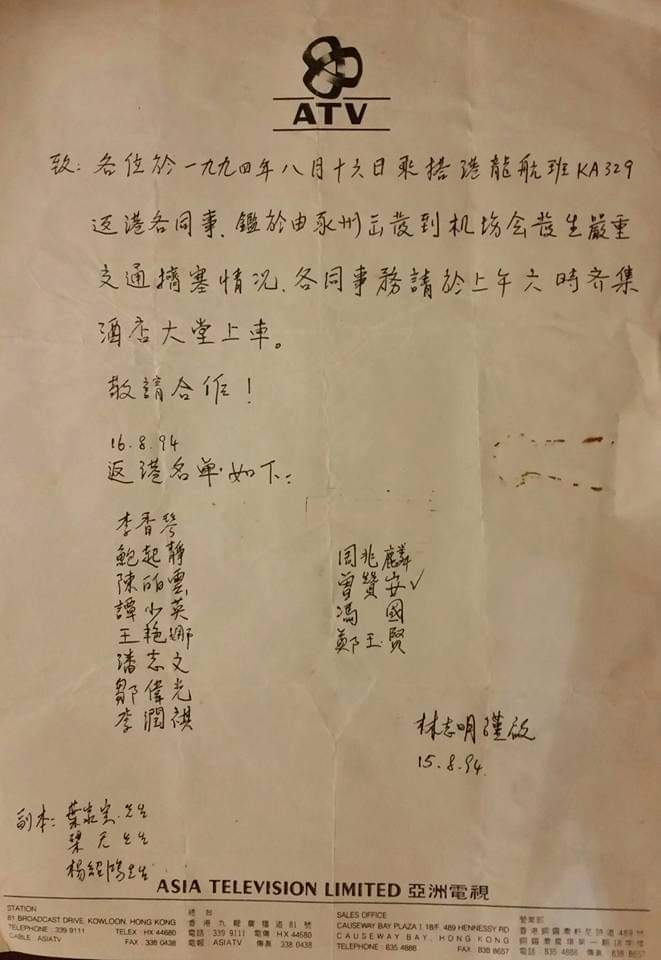 ATV
致：各位於一九九四年八月十六日乘搭港龍航班KA329
返港各同事，鑑於由永州出發到机场会發生嚴重
交通擠塞情况，各同事務請於上午六時齐集
酒店大堂上車。
敬請合作！
16.8.94
返港名单如下：
李香琴
鮑起靜
陳皓雲
譚少英
王艳娜
潘志文
鄒偉光
李潤祺
周兆麟
曾贊安✓
馮國
鄭玉賢
林志明謹啟
15.8.94.
副本：葉家宝先生
梁天先生
楊紹鴻先生
ASIA TELEVISION LIMITED 亞洲電視
STATION
81 BROADCAST DRIVE, KOWLOON, HONG KONG
TELEPHONE : 339 9111 TELEX HX 44680
CABLE : ASIATV FAX : 338 0438
總台
香港九龍廣播道81號
電話：339 9111 電傳 HX 44680
電報：ASIATV 傳真 338 0438
SALES OFFICE
CAUSEWAY BAY PLAZA I, 18/F, 489 HENNESSY RD
CAUSEWAY BAY, HONG KONG
TELEPHONE : 835 4888 FAX : 838 8657
營業部
香港銅鑼灣軒尼詩道489號
銅鑼灣廣場第一期18字樓
電話：835 4888 傳真：838 8657